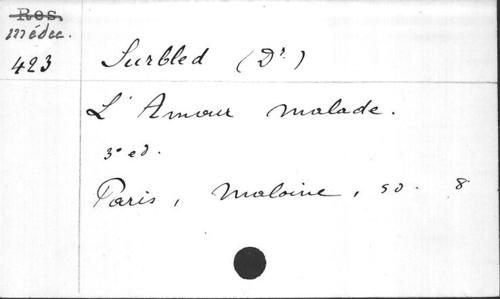 Res.
médec.
423
Surbled (Dr.)
L'Amour malade.
3e ed.
Paris, Maloine, sd. 8